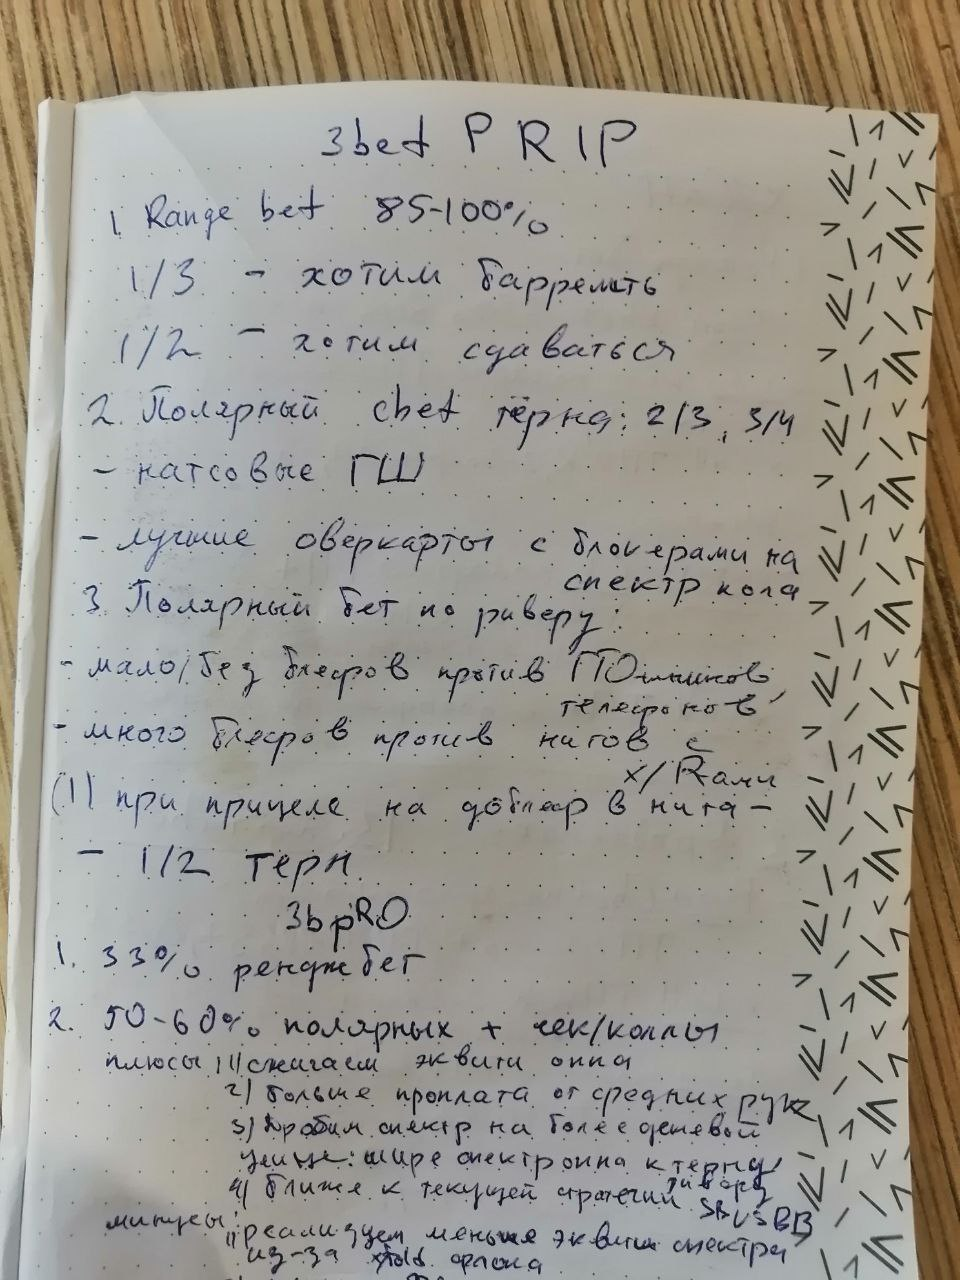 3bet PRIP
1. Range bet 85-100%
1/3 - хотим баррелить
1/2 - хотим сдаваться
2. Полярный cbet тёрна: 2/3, 3/4
- натсовые ГШ
- лучшие оверкарты с блокерами на
спектр кола
3. Полярный бет по риверу:
- мало/без блефов против ГТОшников,
телефонов
- много блефов против нитов с
x/Rами
(1) при прицеле на дблеф в нита -
- 1/2 терн
3bpRO
1. 33% рендж бет
2. 50-60% полярных + чек/коллы
плюсы: 1) сжигаем эквити оппа
2) больше проплата от средних рук
3) Дробим спектр на более дешевой
улице: шире спектр оппа к терну
4) ближе к текущей стратегии
SB vs BB
минусы: 1) реализуем меньше эквити спектра
из-за флопа